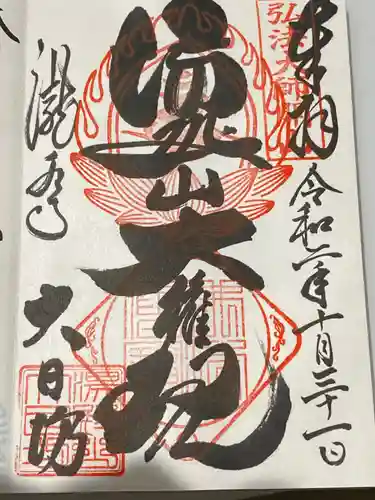 弘法大師
奉拝
令和 年十月三十一日
湯殿山大権現
瀧水寺
大日坊